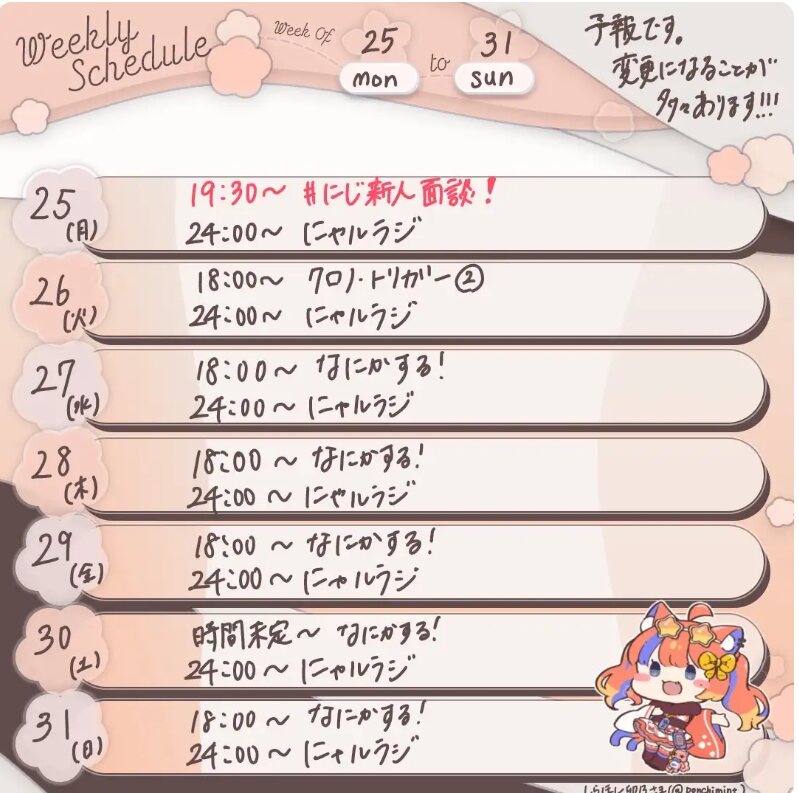 Weekly Schedule
Week Of
25 to 31
mon sun
予報です。
変更になることが
多々あります!!!
25(月)
19:30〜 #にじ新人面談!
24:00〜 にャルラジ
26(火)
18:00〜 クロノ・トリガー②
24:00〜 にャルラジ
27(水)
18:00〜 なにかする!
24:00〜 にャルラジ
28(木)
18:00〜 なにかする!
24:00〜 にャルラジ
29(金)
18:00〜 なにかする!
24:00〜 にャルラジ
30(土)
時間未定〜 なにかする!
24:00〜 にャルラジ
31(日)
18:00〜 なにかする!
24:00〜 にャルラジ